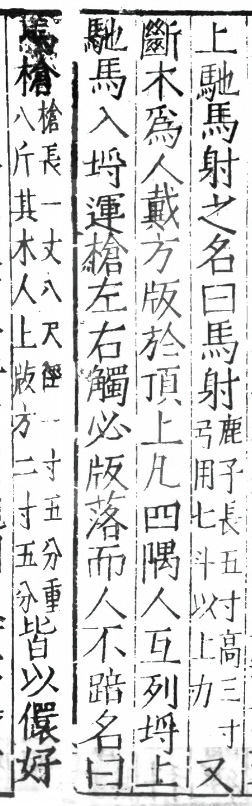 上馳馬射之名曰馬射鹿子長五寸高三寸弓用七斗以上力又
斷木爲人戴方版於頂上凡四隅人互列埒上
馳馬入埒運槍左右觸必版落而人不踣名曰
馬槍槍長一丈八尺徑一寸五分重八斤其木人上版方二寸五分皆以儇好